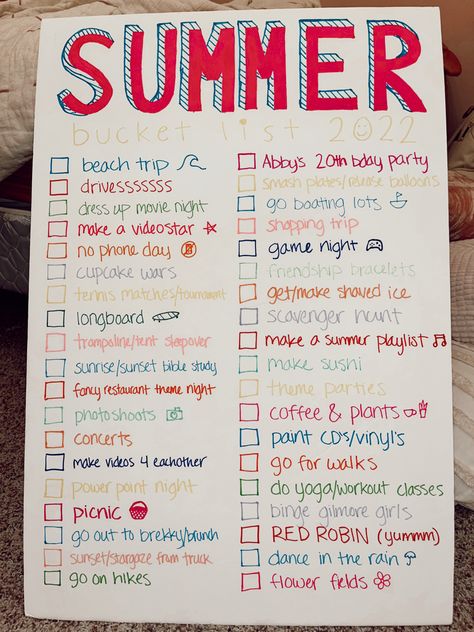 SUMMER
bucket list 2022
beach trip
drivesssssss
dress up movie night
make a videostar
no phone day
cupcake wars
tennis matches/tournament
longboard
trampoline/tent sleepover
sunrise/sunset bible study
fancy restaurant theme night
photoshoots
concerts
make videos 4 eachother
power point night
picnic
go out to brekky/brunch
sunset/stargaze from truck
go on hikes
Abby's 20th bday party
smash plates/release balloons
go boating lots
shopping trip
game night
friendship bracelets
get/make shaved ice
scavenger hunt
make a summer playlist
make sushi
theme parties
coffee & plants
paint CD's/vinyl's
go for walks
do yoga/workout classes
binge gilmore girls
RED ROBIN (yummm)
dance in the rain
flower fields